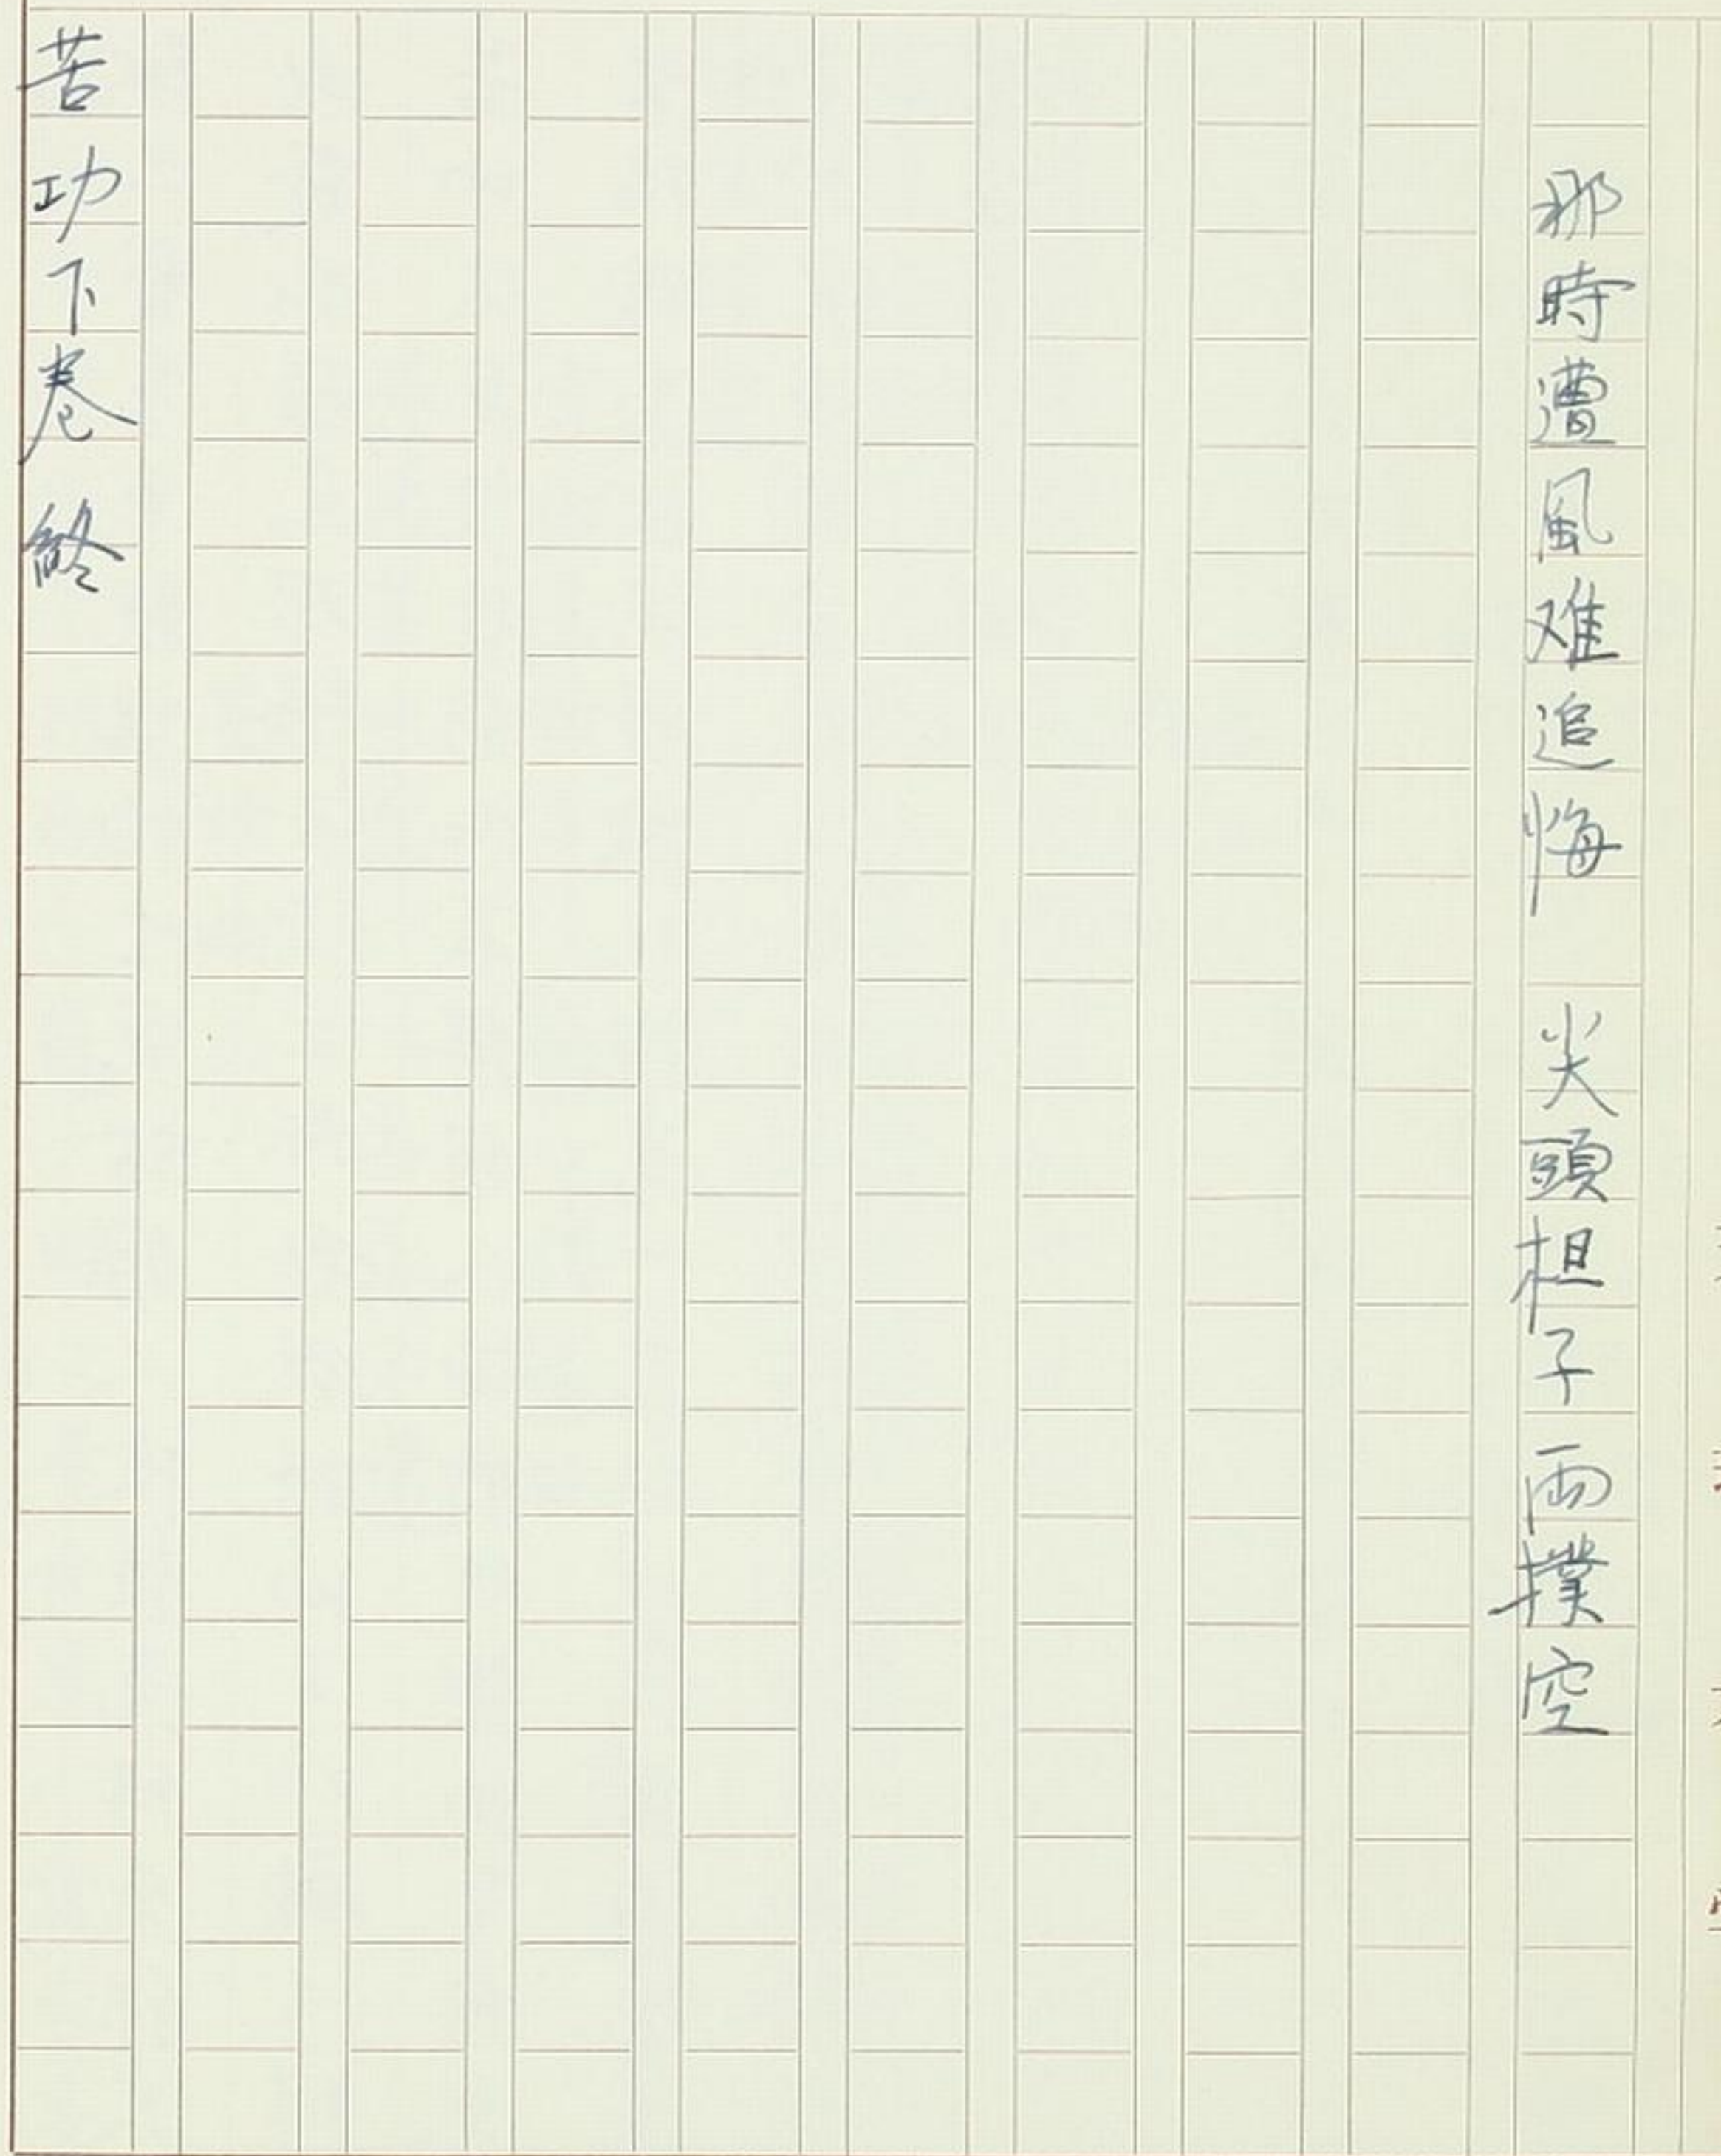 那時遭風难追悔　尖頭担子両撲空
苦功下卷終